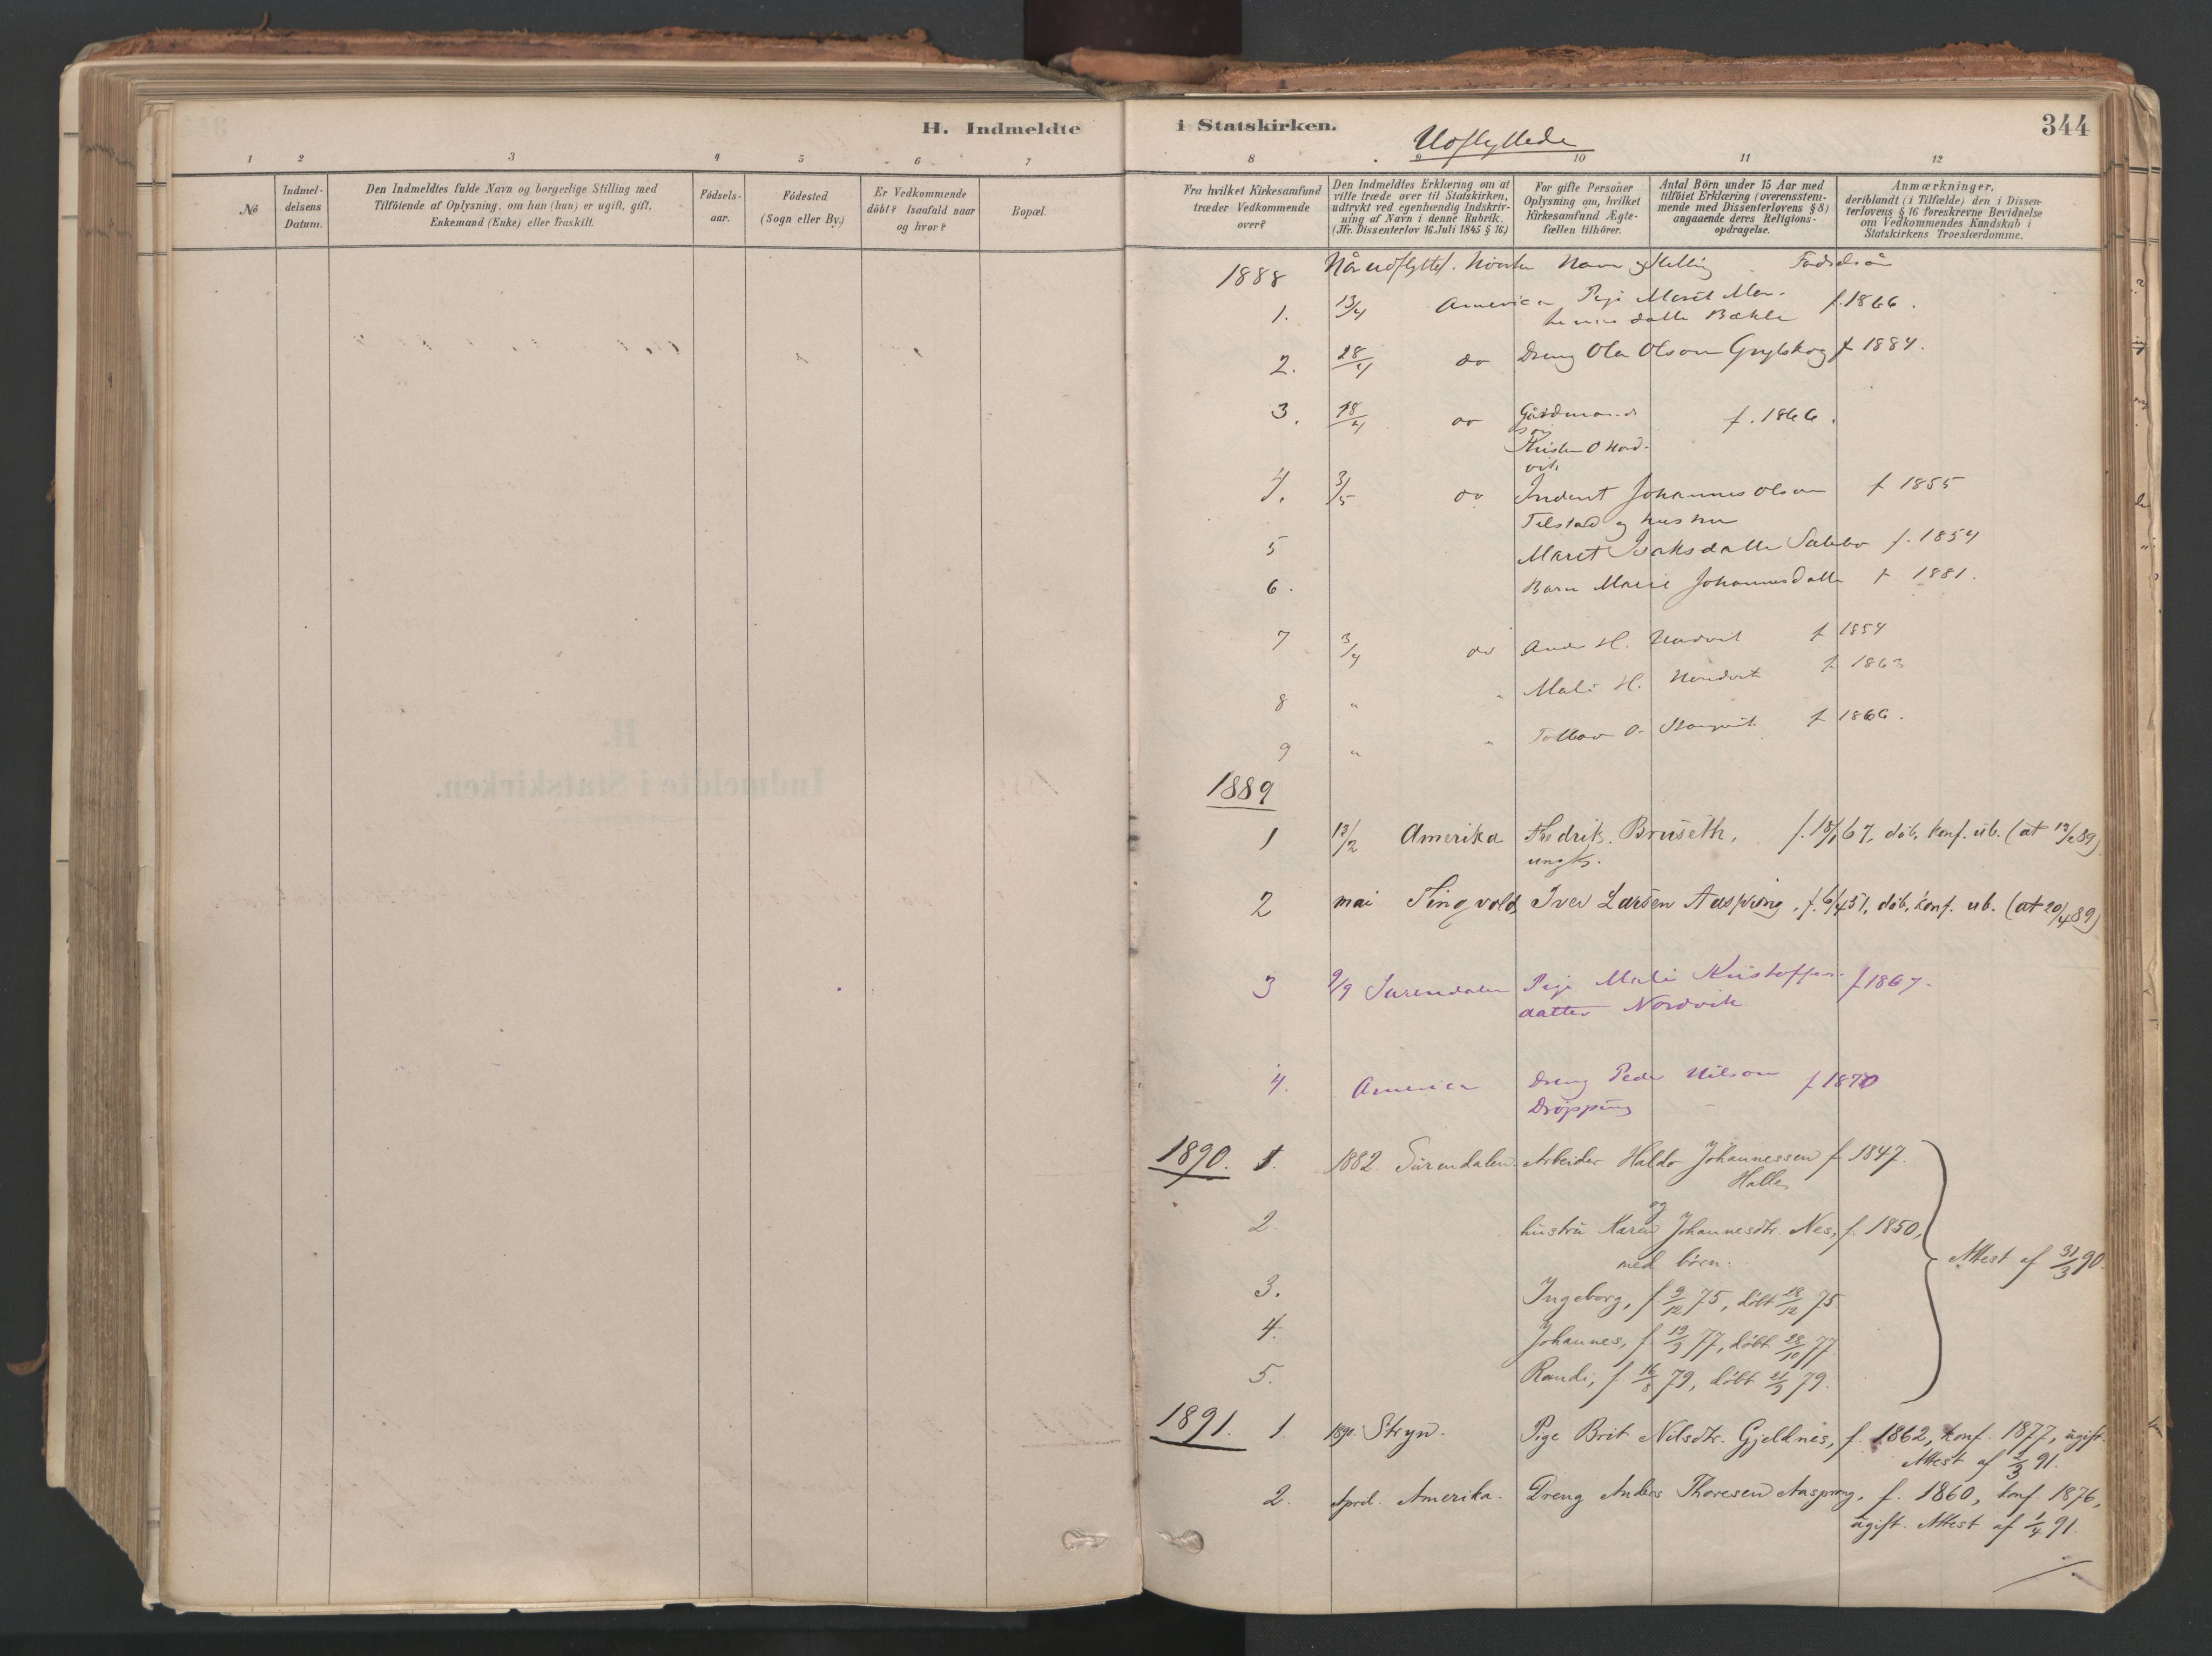 H. Indmeldte
1 2 3 4 5 6 7
№
Indmel-
delsens
Datum.
Den Indmeldtes fulde Navn og borgerlige Stilling med
Tilföiende af Oplysning, om han (hun) er ugift, gift,
Enkemand (Enke) eller fraskilt.
Födsels-
aar.
Födested
(Sogn eller By.)
Er Vedkommende
döbt? Isaafald naar
og hvor?
Bopæl.
i Statskirken.
Udflyttede
344
8 9 10 11 12
Fra hvilket Kirkesamfund
træder Vedkommende
over?
Den Indmeldtes Erklæring om at
ville træde over til Statskirken,
udtrykt ved egenhændig Indskriv-
ning af Navn i denne Rubrik.
(Jfr. Dissenterlov 16. Juli 1845 § 16.)
For gifte Personer
Oplysning om, hvilket
Kirkesamfund Ægte-
fællen tilhörer.
Antal Börn under 15 Aar med
tilföiet Erklæring (overensstem-
mende med Dissenterlovens § 8)
angaaende deres Religions-
opdragelse.
Anmærkninger,
deriblandt (i Tilfælde) den i Dissen-
terlovens § 16 foreskrevne Bevidnelse
om Vedkommendes Kundskab i
Statskirkens Troeslærdomme.
1888 Når udflyttet. hvorhen Navn og Stilling Fødselsår
1. 13/4 America Pige Marit f. 1866.
datter Bækken
2. 28/4 do Dreng Ola Olsson f 1884.
3. 18/4 do Gårdmands f. 1866.
søn
O Nord-
vik
4. 3/5 do Inderst Johannes Olsen f 1855
og hustru
5 Marit Isaksdatter f. 1854
6. Barn Marie Johannesdatter f 1881.
7 3/4 do H. Nordvik f 1854
8 " " Mali H. Nordvik f 1863
9 " " O. f 1866.
1889
1 13/2 Amerika Fredrik Bruseth, f. 18/1 67, døb, konf. ub. (at 13/2 89)
ungk.
2 mai Tingvold, Iver Larsen Aasprong, f. 6/4 51, døb, konf. ub. (at 20/4 89)
3 9/9 Surendalen Pige Mali Kristoffer- f 1867.
datter Nordvik
4. America Dreng Peder Nilsson f 1870
Drøpping
1890. 1. 1882. Surendalen. Arbeider Haldo Johannessen f. 1847.
Halle,
og
2. hustru Karen Johannesdtr. Nes, f. 1850,
med børn: Attest af 31/3 90.
3. Ingeborg, f. 9/12 75, døbt 28/12 75.
4. Johannes, f. 19/9 77, døbt 28/10 77.
5. Randi, f. 16/8 79, døbt 21/9 79.
1891. 1. 1890. Stryn. Pige Brit Nilsdtr. Gjeldnes, f. 1862, konf. 1877, ugift.
Attest af 2/3 91.
2. April. Amerika. Dreng Anders Thoresen Aasprong, f. 1860, konf. 1876,
ugift. Attest af 1/4 91.